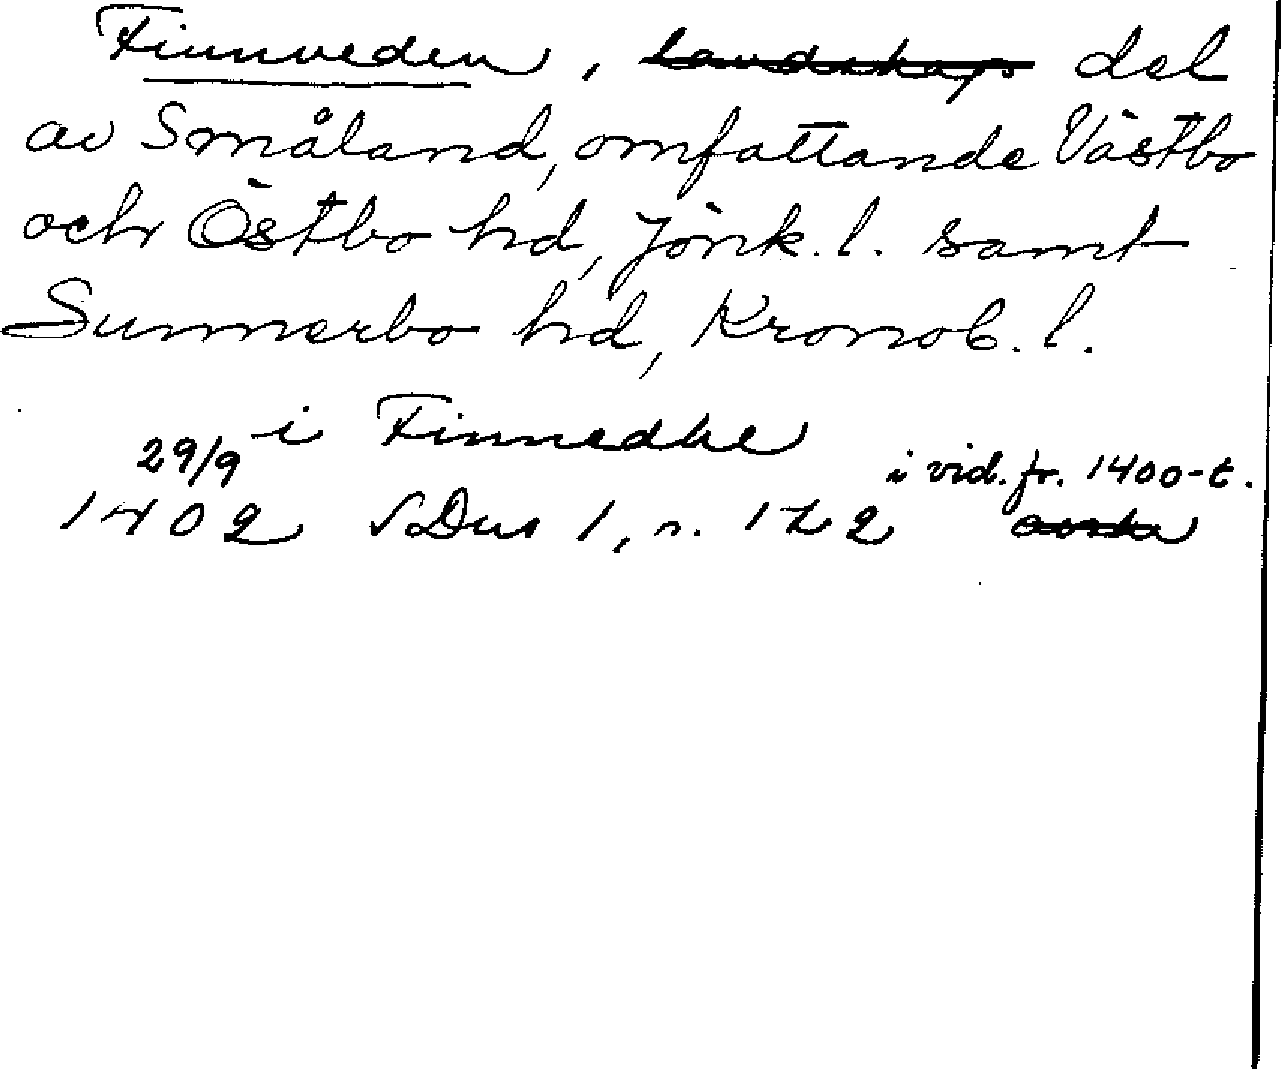 Finnveden, landskap del
av Småland, omfattande Västbo
och Östbo hd, Jönk. l. samt
Sunnerbo hd, Kronob. l.
i Finnedhe
29/9 i vid. fr. 1400-t.
1402 SDns 1, s. 122